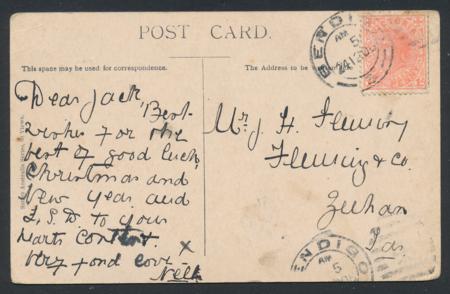 POST CARD.
This space may be used for correspondence.
The Address to be
BENDIGO
AM
5
Dear Jack
Best
wishes for the
best of good luck
Christmas and
New Year and
L.S.D. to your
Harts Content.
Very fond
X
Nell
Mr J. H. Fleming
Fleming & Co.
Zeehan
Tas
ENDIGO
AM
5